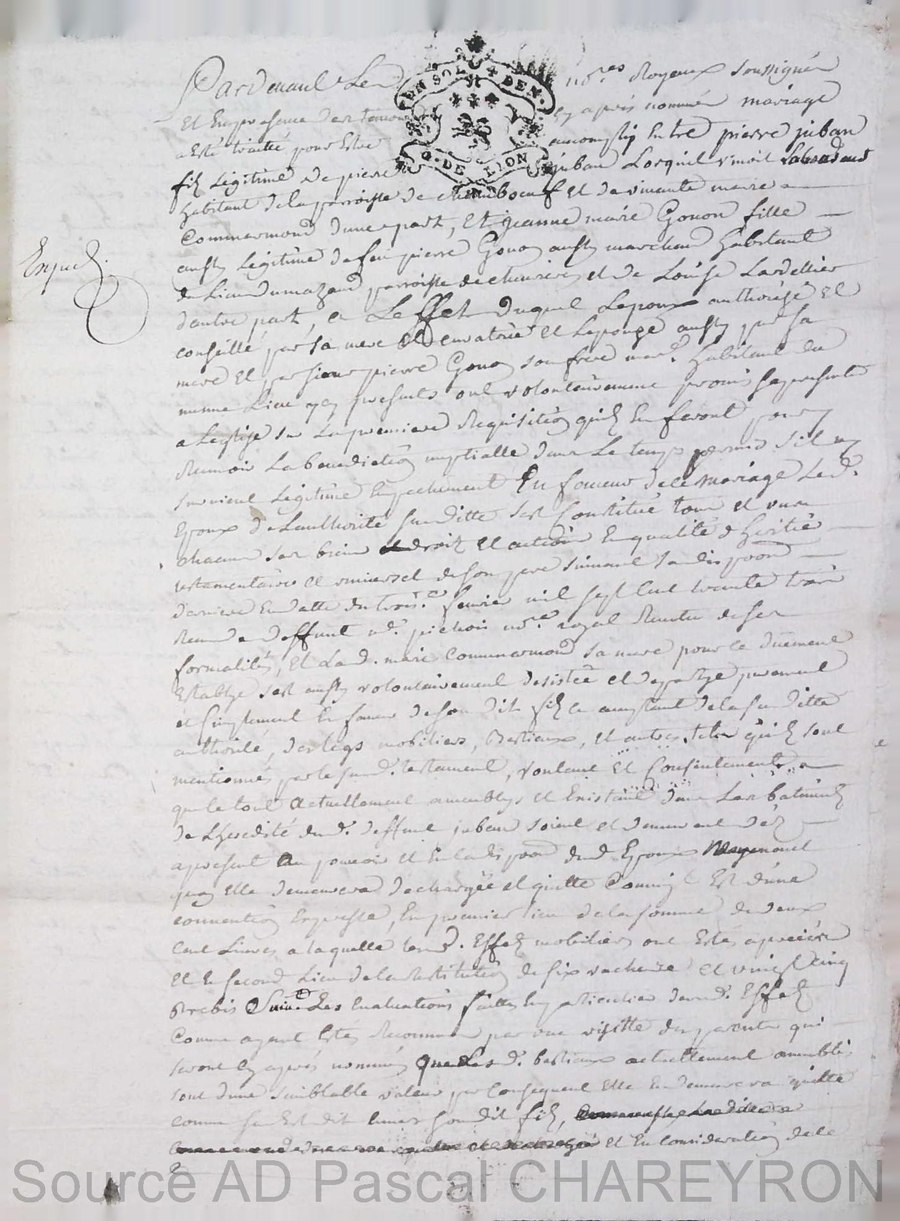 Pardevant Les no.res Royaux soussignés
Et En presence des temoins cy après nommés mariage
a Esté traitté pour Estre accomply Entre pierre juban
fils Legitime de pierre juban Lorsquil vivoit Laboureur
habitant de la parroisse de chambœuf Et de vivante marie
Commarmond d'une part, Et jeanne marie Gonon fille
aussy Légitime de feu pierre Gonon aussy marchand habitant
du Lieu du mazard parroisse de chevrieres et de Louise Lardellier
d'autre part, a Leffet Duquel Lepoux authorisé Et
conseillé par sa mere Et curatrice Et Lepouze aussy par sa
mere Et par sieur pierre Gonon son frere mar.d habitant du
même Lieu icy presents ont volontairement promis se presenter
a Leglise sur La premiere Requisition quils En feront pour y
Recevoir La benediction nuptialle dans Le temps permis s'il ny
survient Légitime Empechement En faveur de ce mariage Le d.
Epoux de Lauthorité susditte sest Constitué tous et uns
chacuns ses biens droits et actions En qualité d'heritié
testamentaire et universel de son pere suivant sa disposon
derniere En datte du trois.e fevrier mil sept Cent trente trois
Receu de deffunt m.e pichois no.re royal Revetu de ses
formalités, Et La d. marie Commarmond sa mere pour ce duëment
Establye sest aussy volontairement desistée et departye purement
et simplement En faveur de son dit fils ce acceptant de la susditte
authorité, des legs mobiliers, Bestiaux, et autres tels qu'ils sont
mentionnés par le susd. testament, voulant Et Consentant
que le tout actuellement ameublys et Existant dans Les batiments
de Lheredité du d. deffunt juban soient et demeurent dès
apresent au pouvoir et En la dispoon dud. Epoux Moyenant
quoy Elle demeurera dechargée et quitte Comme Est d'une
convention Expresse, En premier lieu de la somme de deux
cent Livres a laquelle les d. Effets mobiliers ont Estés apreciés
Et En second Lieu de la restitution de six vaches et vingt cinq
Brebis Suiv.t Les Evaluations faittes En particulier desd. Effets
Comme ayant Estés Reconnus par une visitte des parents qui
seront cy après nommés que Les d. bestiaux actuellement ameublis
sont d'une semblable valeur par Consequent Elle En demeurera quitte
comme sus Est dit Envers son dit fils,
et En consideration de ce
Expedié.
Source AD Pascal CHAREYRON
EN SOL 4 DEN.
G. DE LION